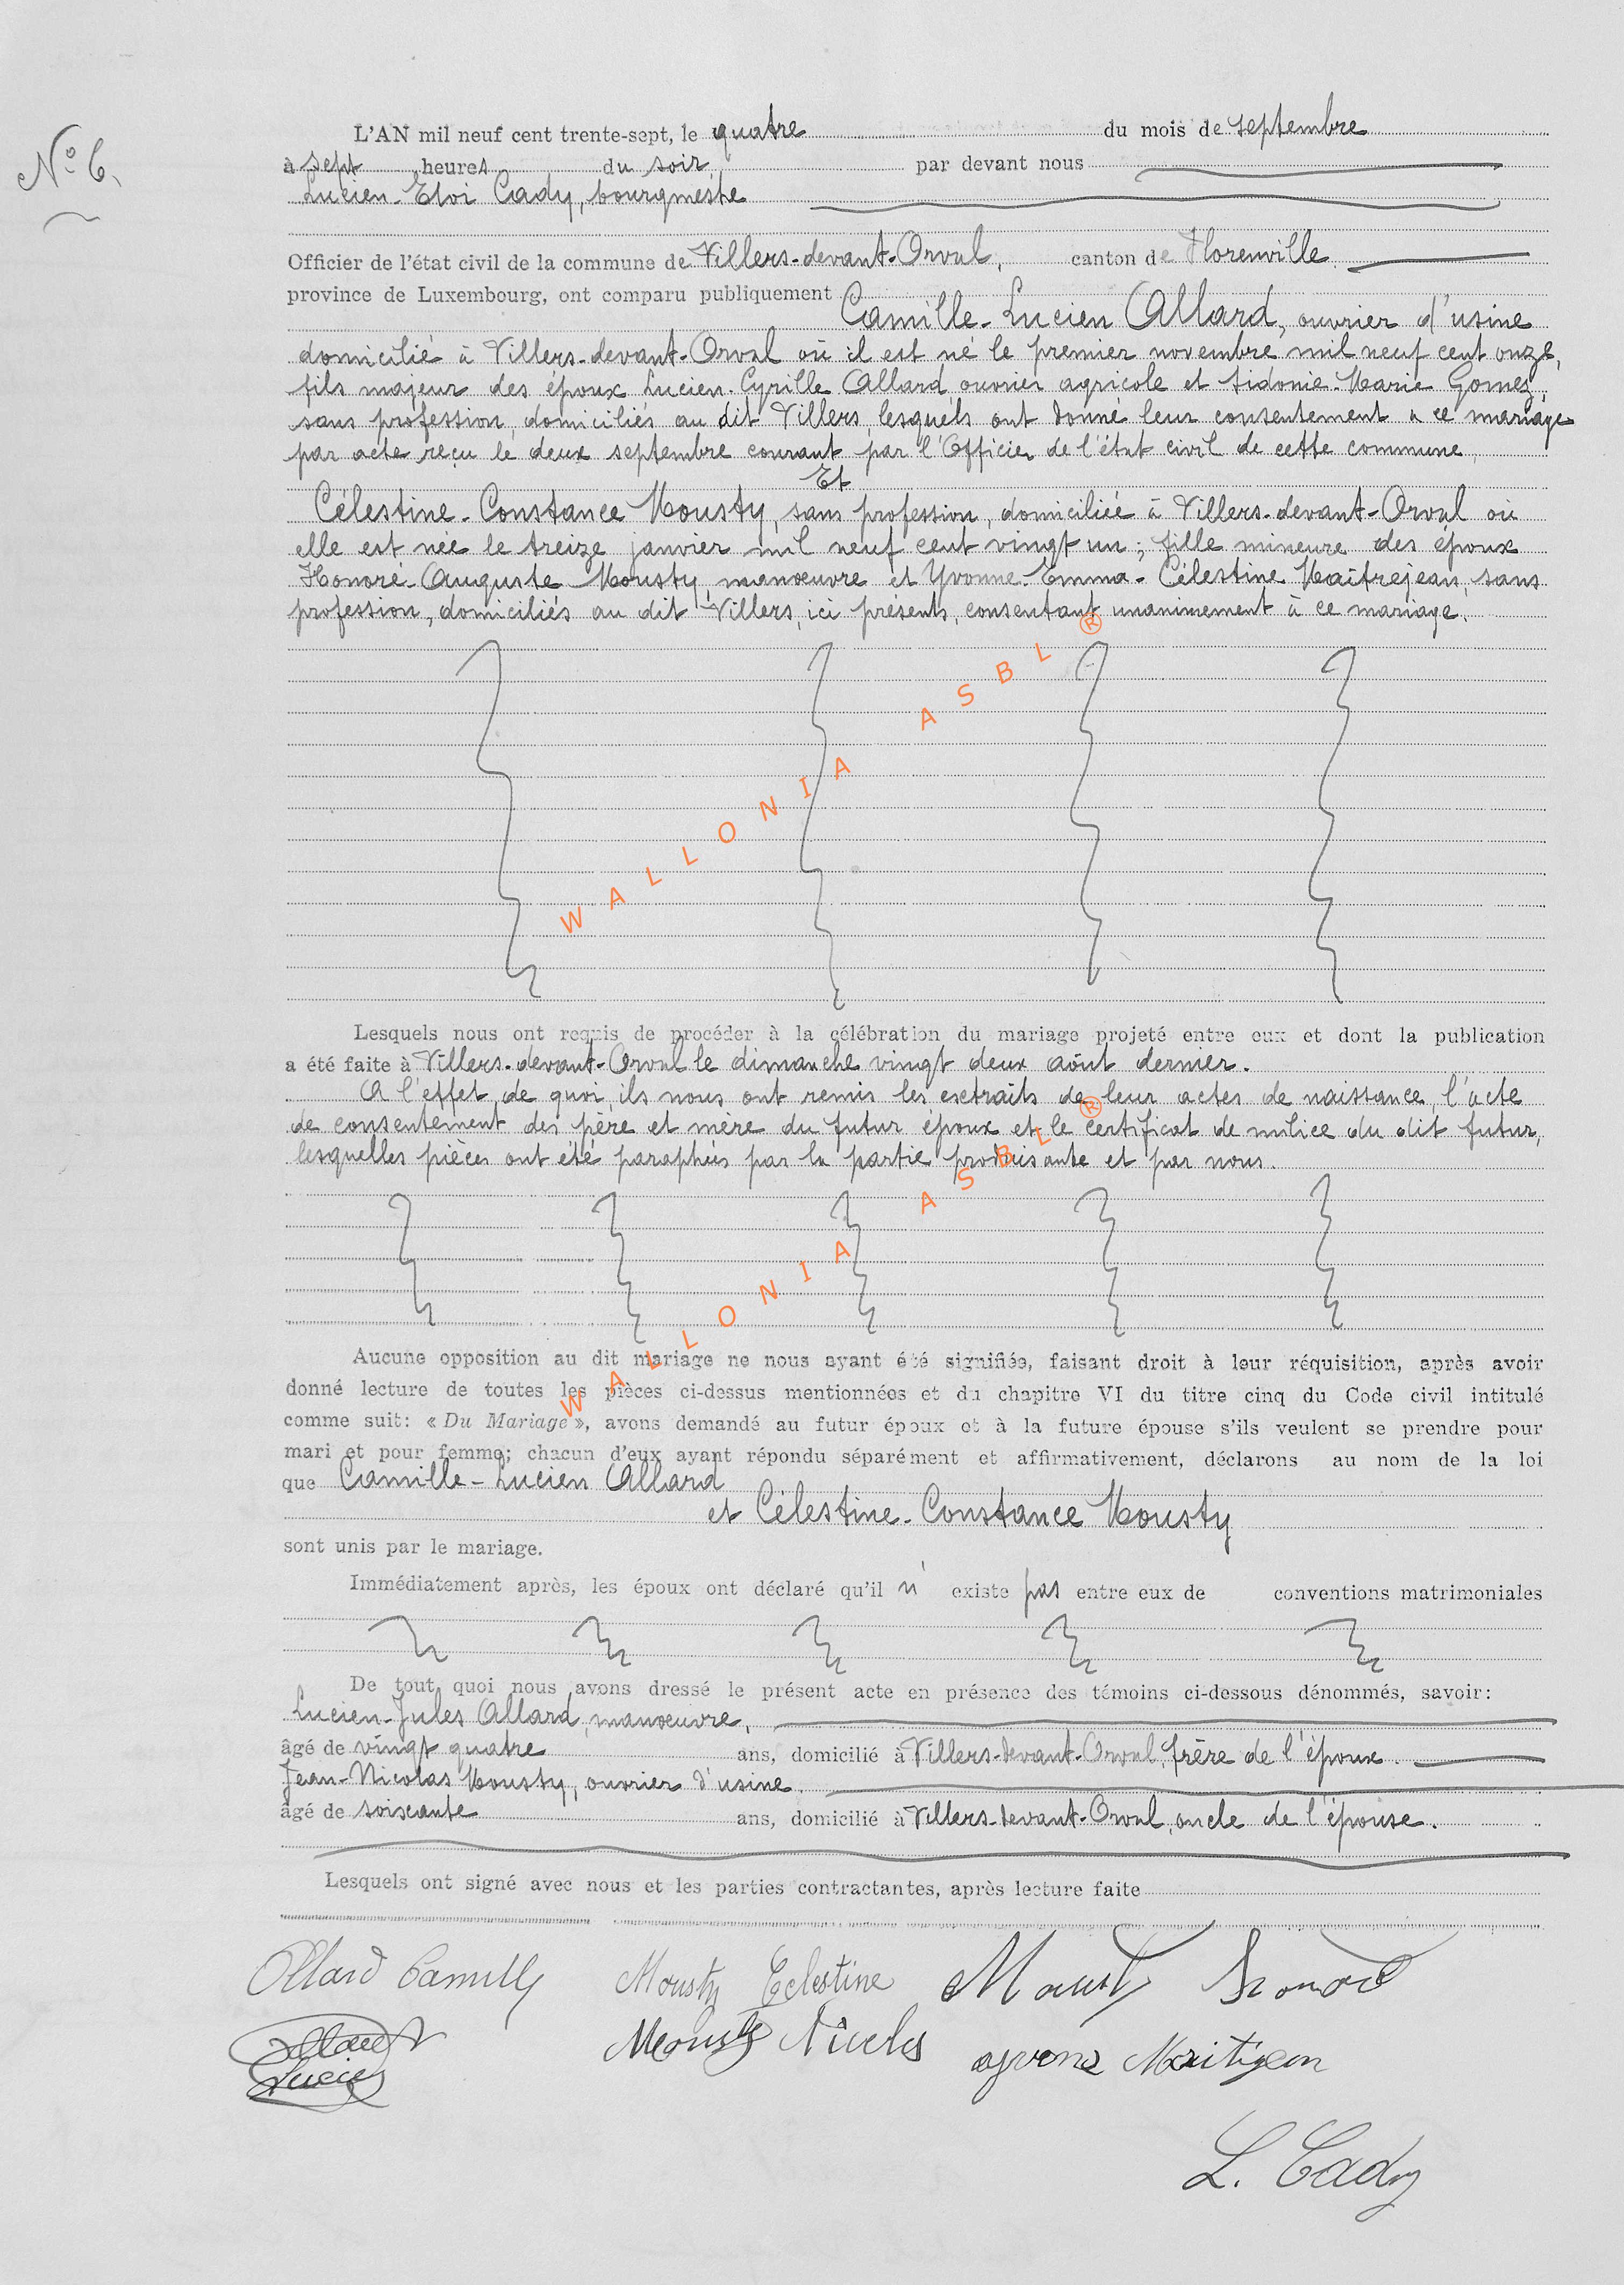 N° 6.
L'AN mil neuf cent trente-sept, le quatre du mois de septembre
à sept heures du soir, par devant nous
Lucien-Eloi Cady, bourgmestre
Officier de l'état civil de la commune de Villers-devant-Orval, canton de Florenville
province de Luxembourg, ont comparu publiquement
Camille-Lucien Allard, ouvrier d'usine
domicilié à Villers-devant-Orval où il est né le premier novembre mil neuf cent onze,
fils majeur des époux Lucien-Cyrille Allard, ouvrier agricole et Sidonie-Marie Gomez,
sans profession, domiciliés au dit Villers, lesquels ont donné leur consentement à ce mariage
par acte reçu le deux septembre courant par l'Officier de l'état civil de cette commune,
Et
Célestine-Constance Mousty, sans profession, domiciliée à Villers-devant-Orval où
elle est née le treize janvier mil neuf cent vingt un; fille mineure des époux
Honoré-Auguste Mousty, manœuvre et Yvonne-Emma-Célestine Maîtrejean, sans
profession, domiciliés au dit Villers, ici présents, consentant unanimement à ce mariage.
WALLONIA ASBL ®
Lesquels nous ont requis de procéder à la célébration du mariage projeté entre eux et dont la publication
a été faite à Villers-devant-Orval le dimanche vingt deux août dernier.
A l'effet de quoi, ils nous ont remis les extraits de leur actes de naissance, l'acte
de consentement des père et mère du futur époux et le certificat de milice du dit futur,
lesquelles pièces ont été paraphées par la partie produisante et par nous.
WALLONIA ASBL ®
Aucune opposition au dit mariage ne nous ayant été signifiée, faisant droit à leur réquisition, après avoir
donné lecture de toutes les pièces ci-dessus mentionnées et du chapitre VI du titre cinq du Code civil intitulé
comme suit: « Du Mariage », avons demandé au futur époux et à la future épouse s'ils veulent se prendre pour
mari et pour femme; chacun d'eux ayant répondu séparément et affirmativement, déclarons au nom de la loi
que Camille-Lucien Allard
et Célestine-Constance Mousty
sont unis par le mariage.
Immédiatement après, les époux ont déclaré qu'il n'existe pas entre eux de conventions matrimoniales
De tout quoi nous avons dressé le présent acte en présence des témoins ci-dessous dénommés, savoir:
Lucien-Jules Allard, manœuvre,
âgé de vingt quatre ans, domicilié à Villers-devant-Orval, frère de l'époux.
Jean-Nicolas Mousty, ouvrier d'usine
âgé de soixante ans, domicilié à Villers-devant-Orval, oncle de l'épouse.
Lesquels ont signé avec nous et les parties contractantes, après lecture faite
Allard Camille Mousty Célestine Mousty Honoré
Allard Mousty Nicolas Yvonne Maitrjean
Lucien
L. Cady